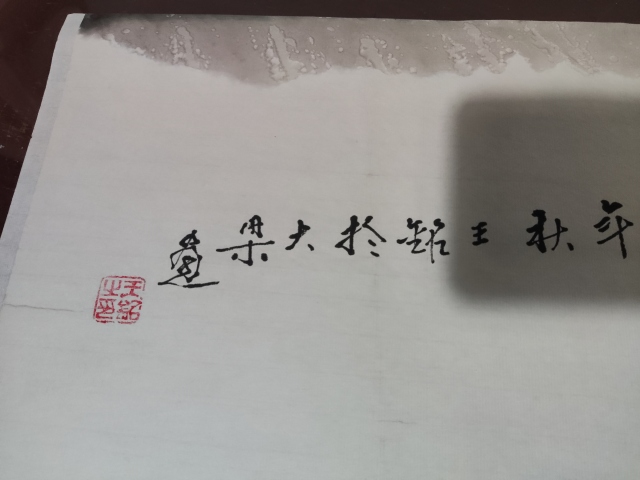 年秋王銘於大梁畫
王銘之印